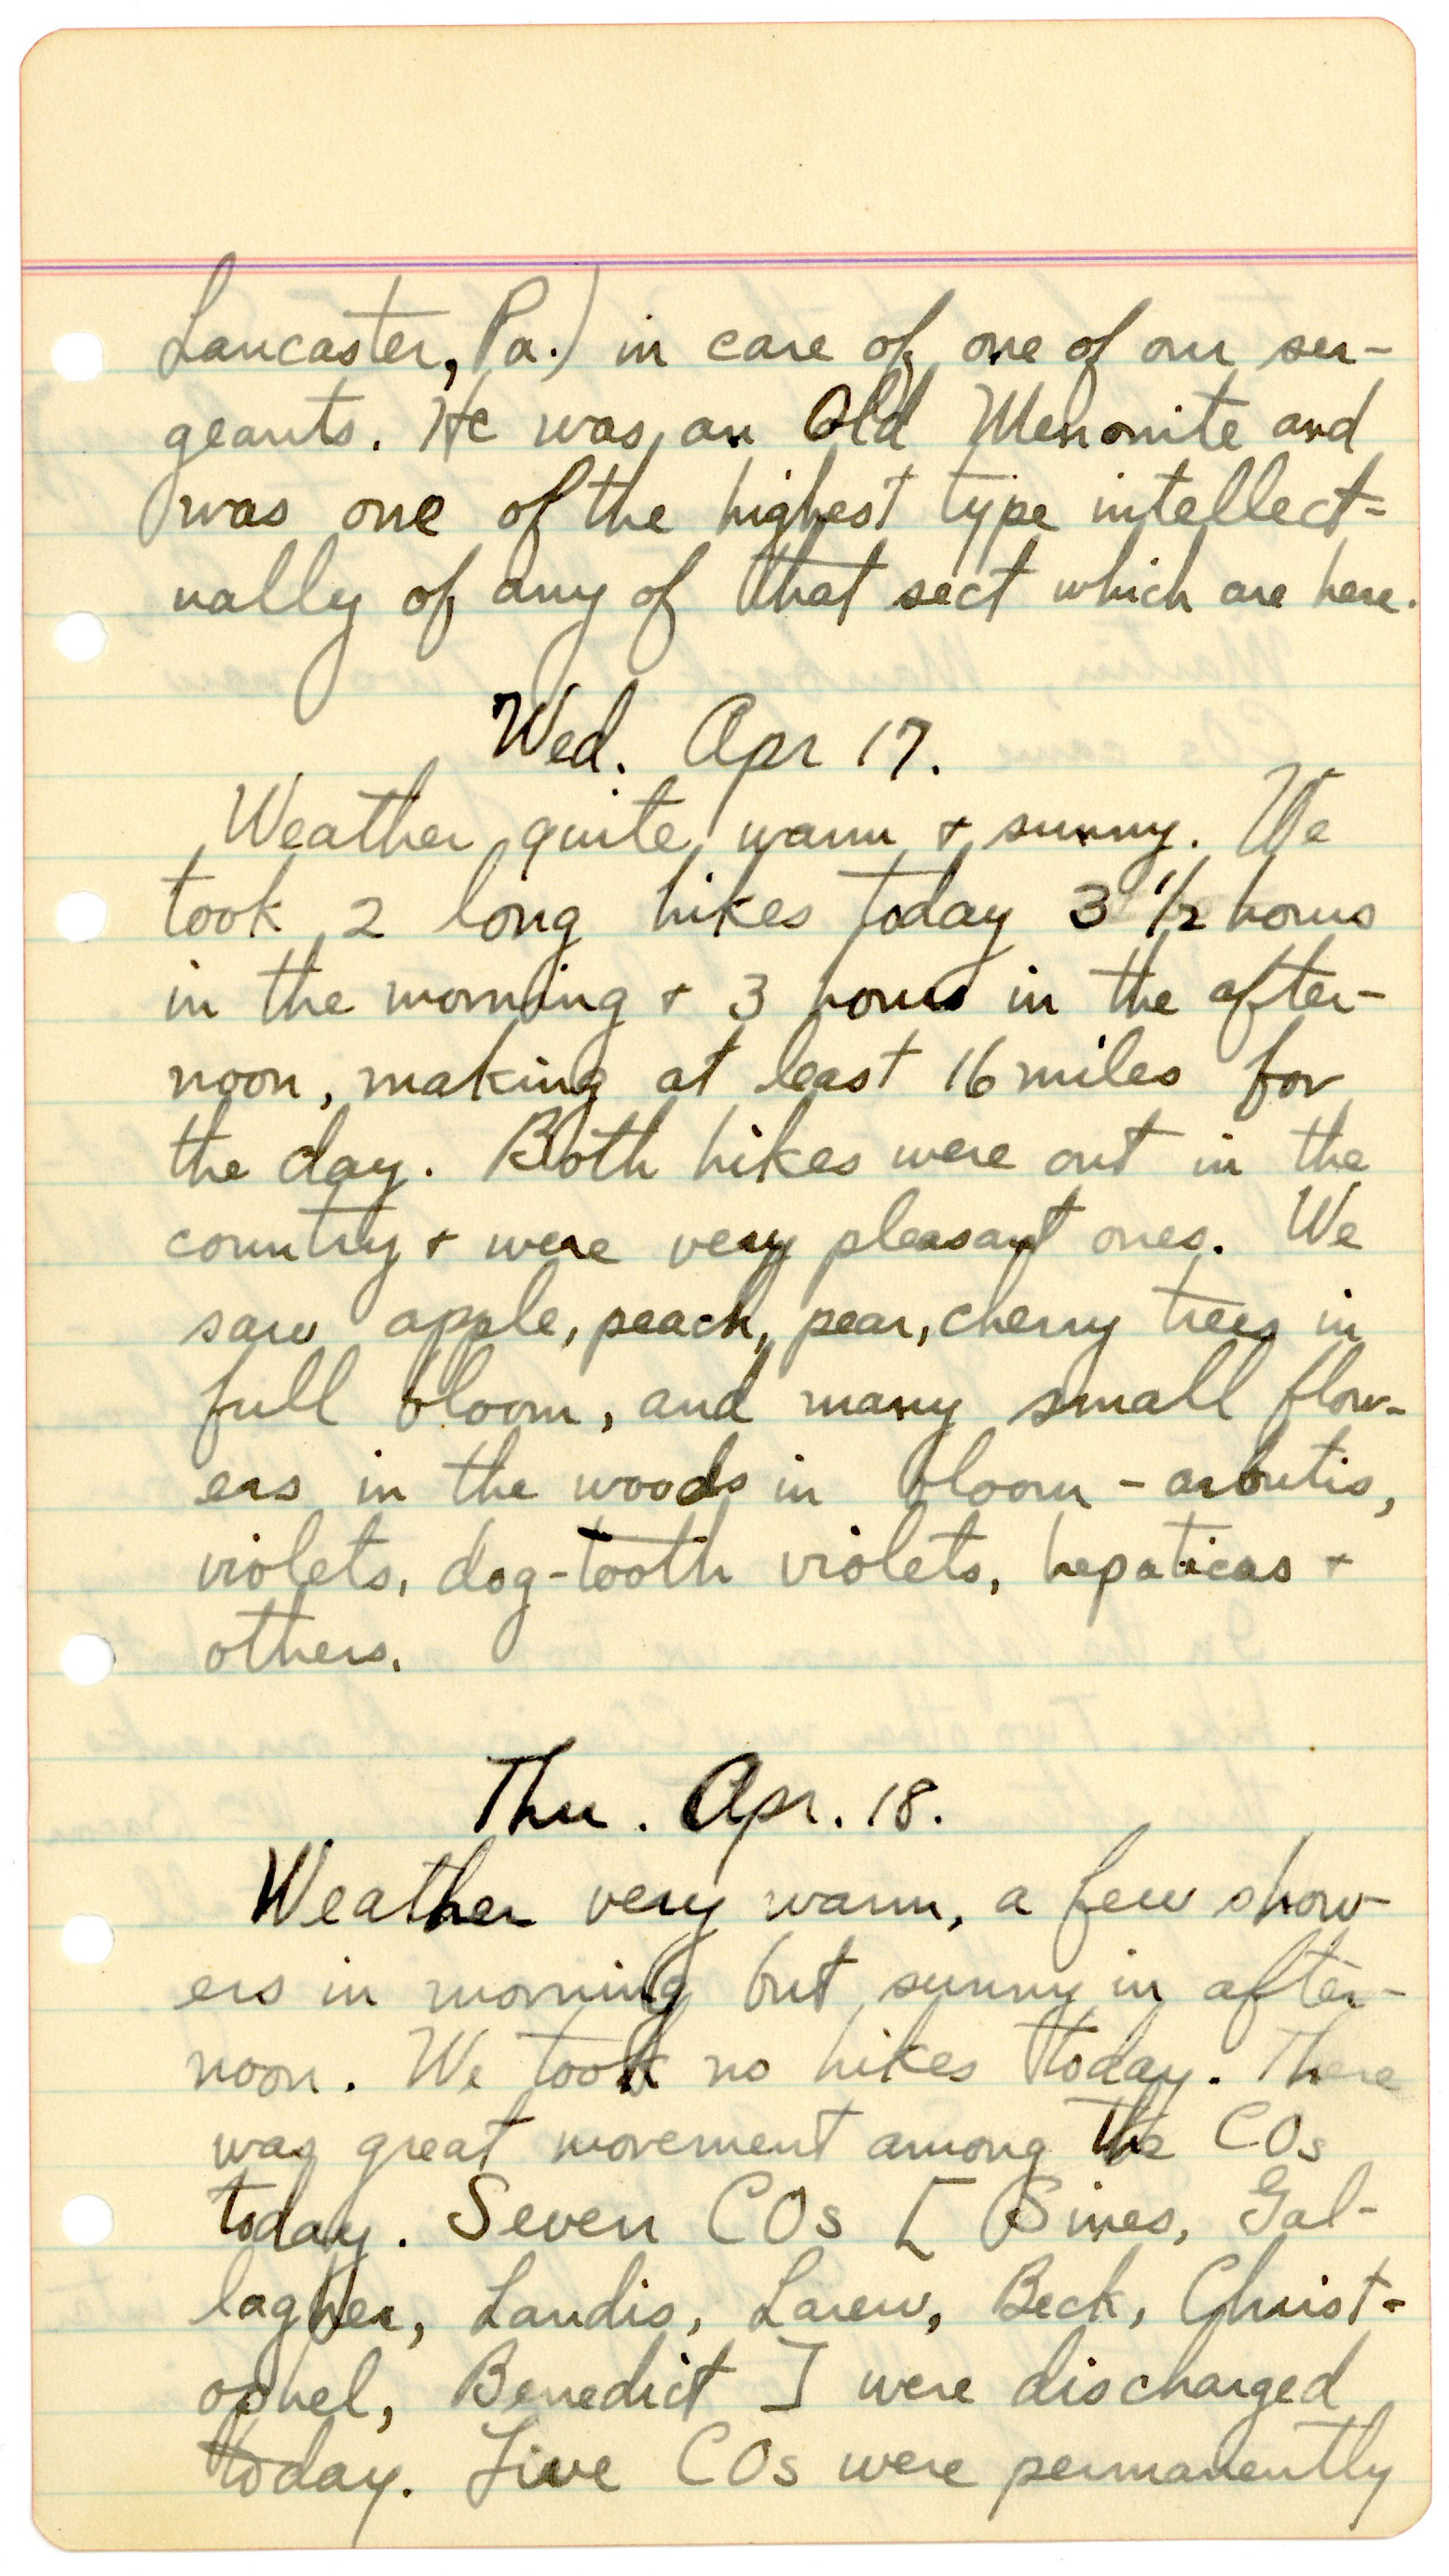 Lancaster, Pa.) in care of one of our ser-
geants. He was an Old Menonite and
was one of the highest type intellect-
ually of any of that sect which are here.
Wed. Apr 17.
Weather quite warm + sunny. We
took 2 long hikes today 3 1/2 hours
in the morning + 3 hours in the after-
noon, making at least 16 miles for
the day. Both hikes were out in the
country + were very pleasant ones. We
saw apple, peach, pear, cherry trees in
full bloom, and many small flow-
ers in the woods in bloom - arbutis,
violets, dog-tooth violets, hepaticas +
others.
Thu. Apr. 18.
Weather very warm, a few show-
ers in morning but sunny in after-
noon. We took no hikes today. There
was great movement among the COs
today. Seven COs [ Sines, Gal-
lagher, Landis, Larew, Beck, Christ-
ophel, Benedict ] were discharged
today. Five COs were permanently